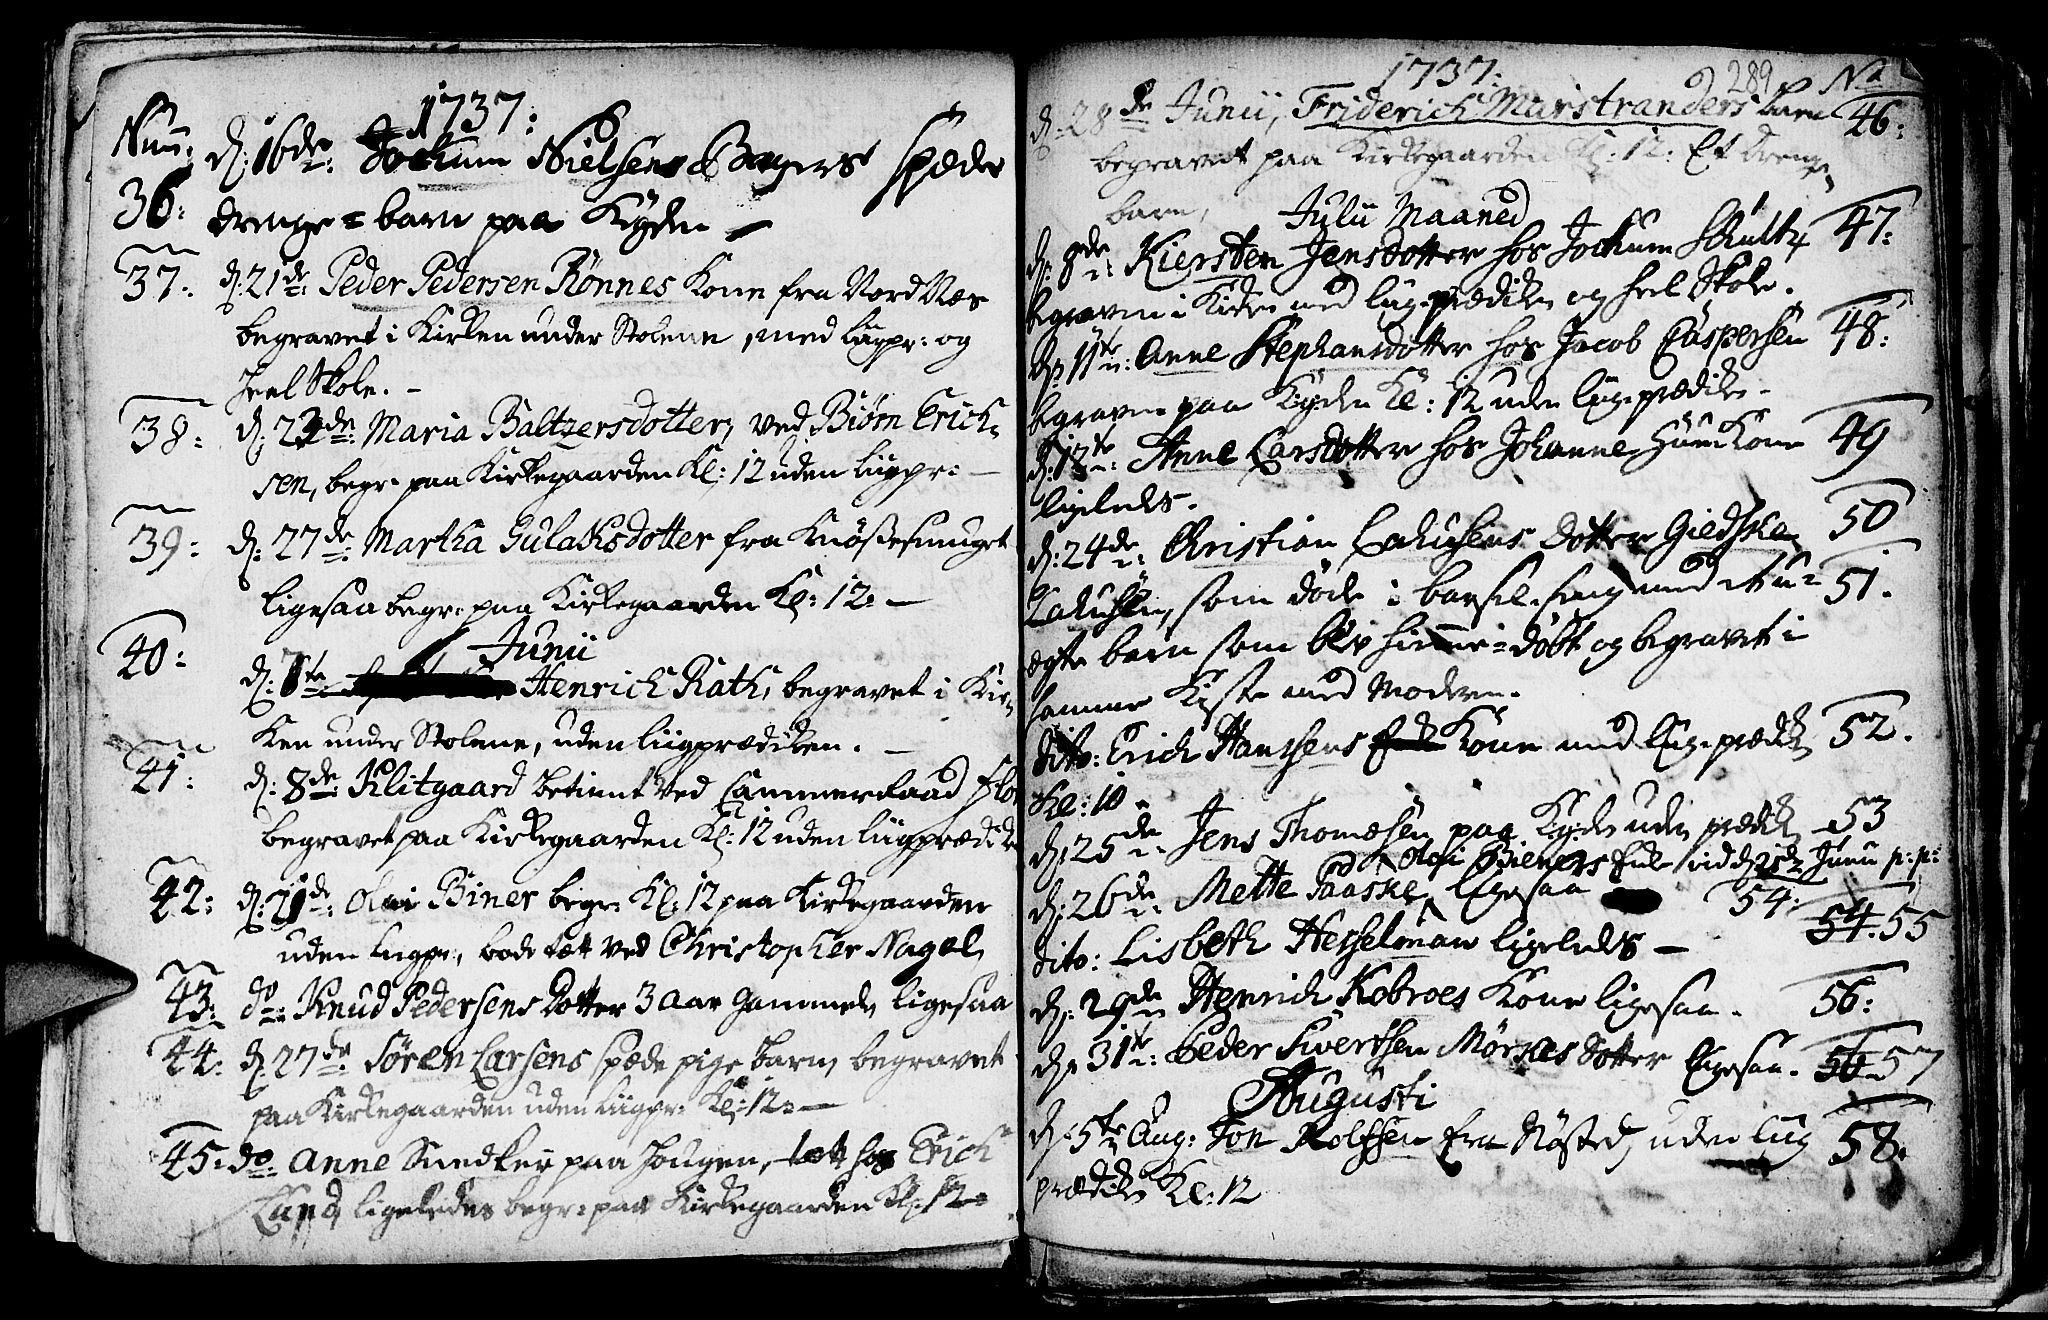 1737:
Num:
36: d: 16de: Jochum Nielsens Bagers spæde
drenge-barn paa Kyden
37: d: 21de: Peder Pedersen Rönnes Kone fra Nord Næs
begravet i Kirken under Stolene, med Liigpr: og
heel Skole.
38: d: 23de: Maria Baltzersdotter, ved Biørn Erich-
sen, begr: paa Kirkegaarden Kl: 12 uden Liigpr:
39: d: 27de: Martha Gulachsdotter fra
ligesaa begr: paa Kirkegaarden Kl: 12:
Junii
40: d: Henrich Rath, begravet i Kir-
ken under Stolene, uden Liigprædiken.
41: d: 8de: Klitgaard betient ved Cammerraad
begravet paa Kirkegaarden Kl: 12 uden Liigprædik
42: d: 21de: Olai Biner begr: Kl: 12 paa Kirkegaarden
uden Liigpr:, bode tæt ved Christopher Nagel,
43: do: Knud Pedersens Dotter 3 aar gammel, ligesaa
44: d: 27de Søren Larsens spæde pige barn, begravet
paa Kirkegaarden uden Liigpr: Kl: 12:
45: do: Anne paa Hougen, tæt hos Erich
Lund, ligeledes begr: paa Kirkegaarden Kl: 12
1737. 289 No
d: 28de Junii, Friderich Marstranders barn 46:
begravet paa Kirkegaarden Kl: 12: Et drenge-
barn,
Julii Maaned
d: 8de: Kiersten Jensdotter hos Jochum Schultz 47:
begraven i Kirken med Liig-prædiken og heel Skole.
d: 11te: Anne Stephansdotter hos Jacob Caspersen 48:
begraven paa Kyden Kl: 12 uden Liigprædike
d: 12te: Anne Larsdotter hos Johanne Kone 49
ligeledes.
d: 24de: Christian Dotter Giedske 50
som døde i barsel-seng med et u- 51.
ægte barn som blev hiemme-døbt og begravet i
samme Kiste med Moderen.
dito: Erich Hanssens Kone med Liig-prædik 52.
Kl: 10
d: 25de Jens Thomesen paa Kyden uden prædik 53
Olai Bieners vid d 21de Junii p: p:
d: 26de: Mette Paaske, Ligesaa 54:
dito: Lisbeth Hesselman ligeledes 54. 55
d: 29de Henrich Kobroes Kone ligesaa. 56:
d: 31te: Peder Sivertsen Mørses Dotter ligesaa. 56 57
Augusti
d: 5te Aug: Jon Rolfsen fra Røsted, uden Liig 58.
prædiken Kl: 12